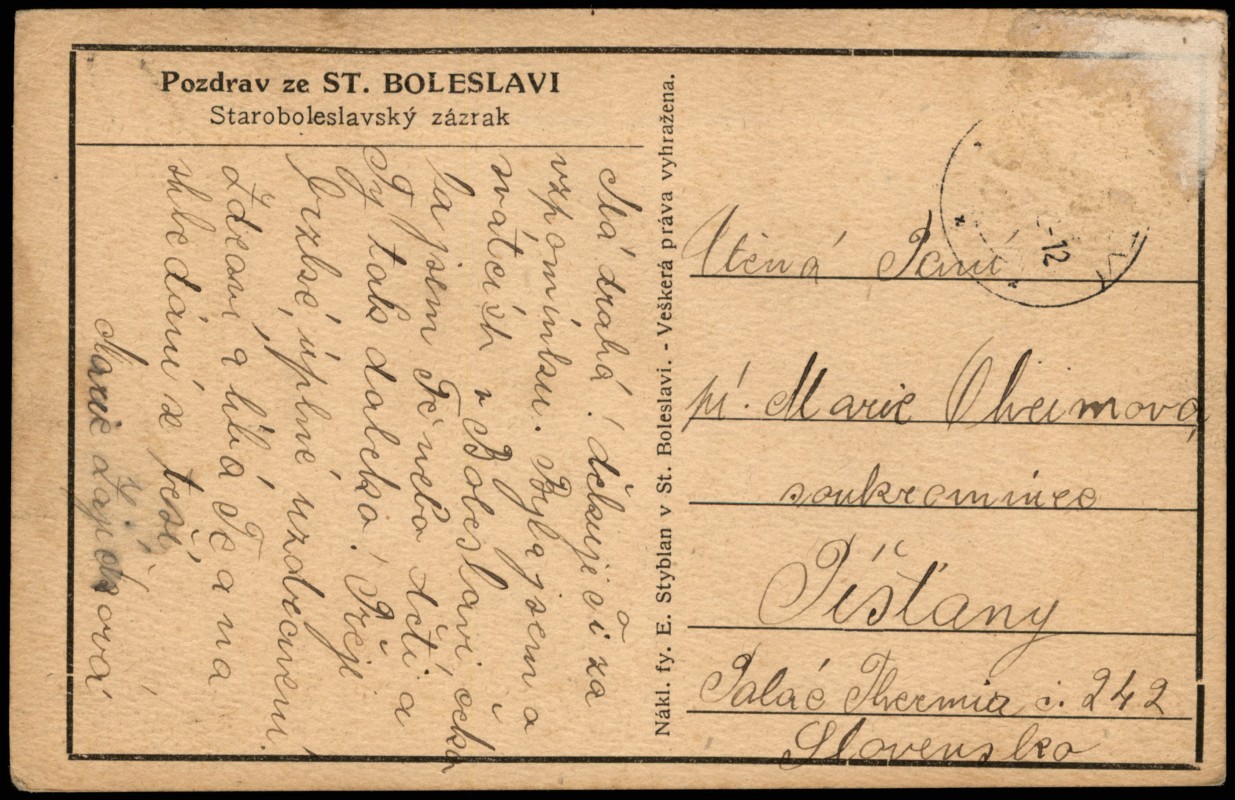 Pozdrav ze ST. BOLESLAVI
Staroboleslavský zázrak
Má drahá! děkuji ci za
vzpomínku. Byla jsem o
svátcích v Boleslavi, čeka
la jsem Tě nebo děti a
Ty tak daleko! Přeji
brzké, úplné uzdravení.
Zdraví a líbá Tě a na
shledání se těší,
Marie
Nákl. fy. E. Styblan v St. Boleslavi. - Veškerá práva vyhražena.
-12
Ctěná Paní
pí. Marie Oheimová
soukromnice
Píšťany
Palác Thermia č. 242
Slovensko